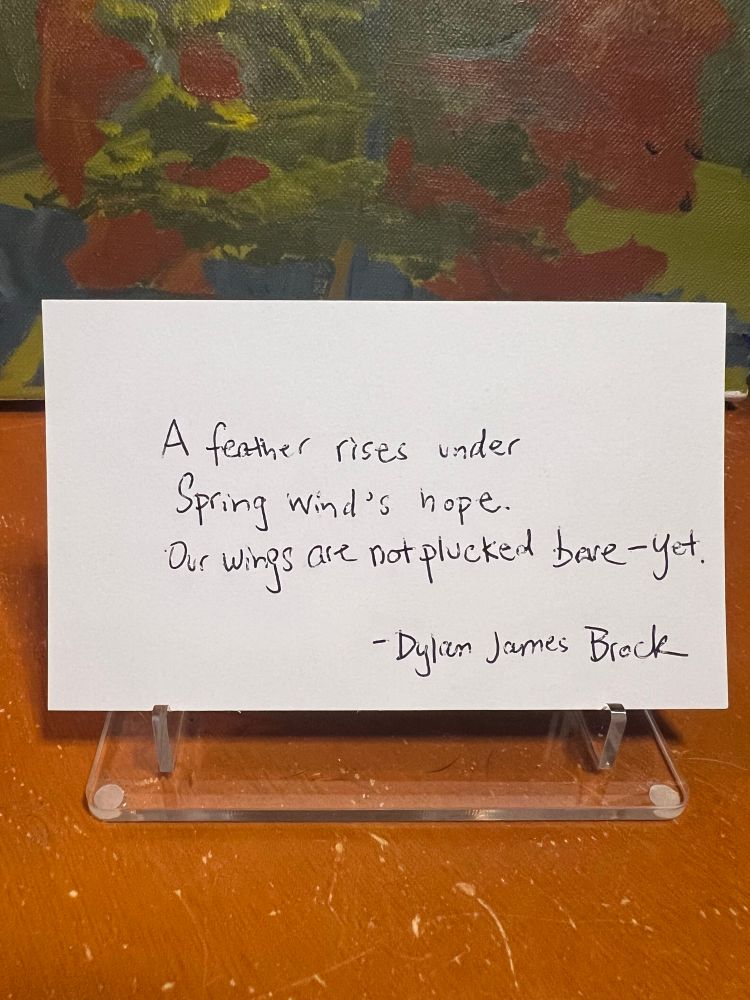 A feather rises under
Spring wind's hope.
Our wings are not plucked bare-yet.
-Dylan James Brock